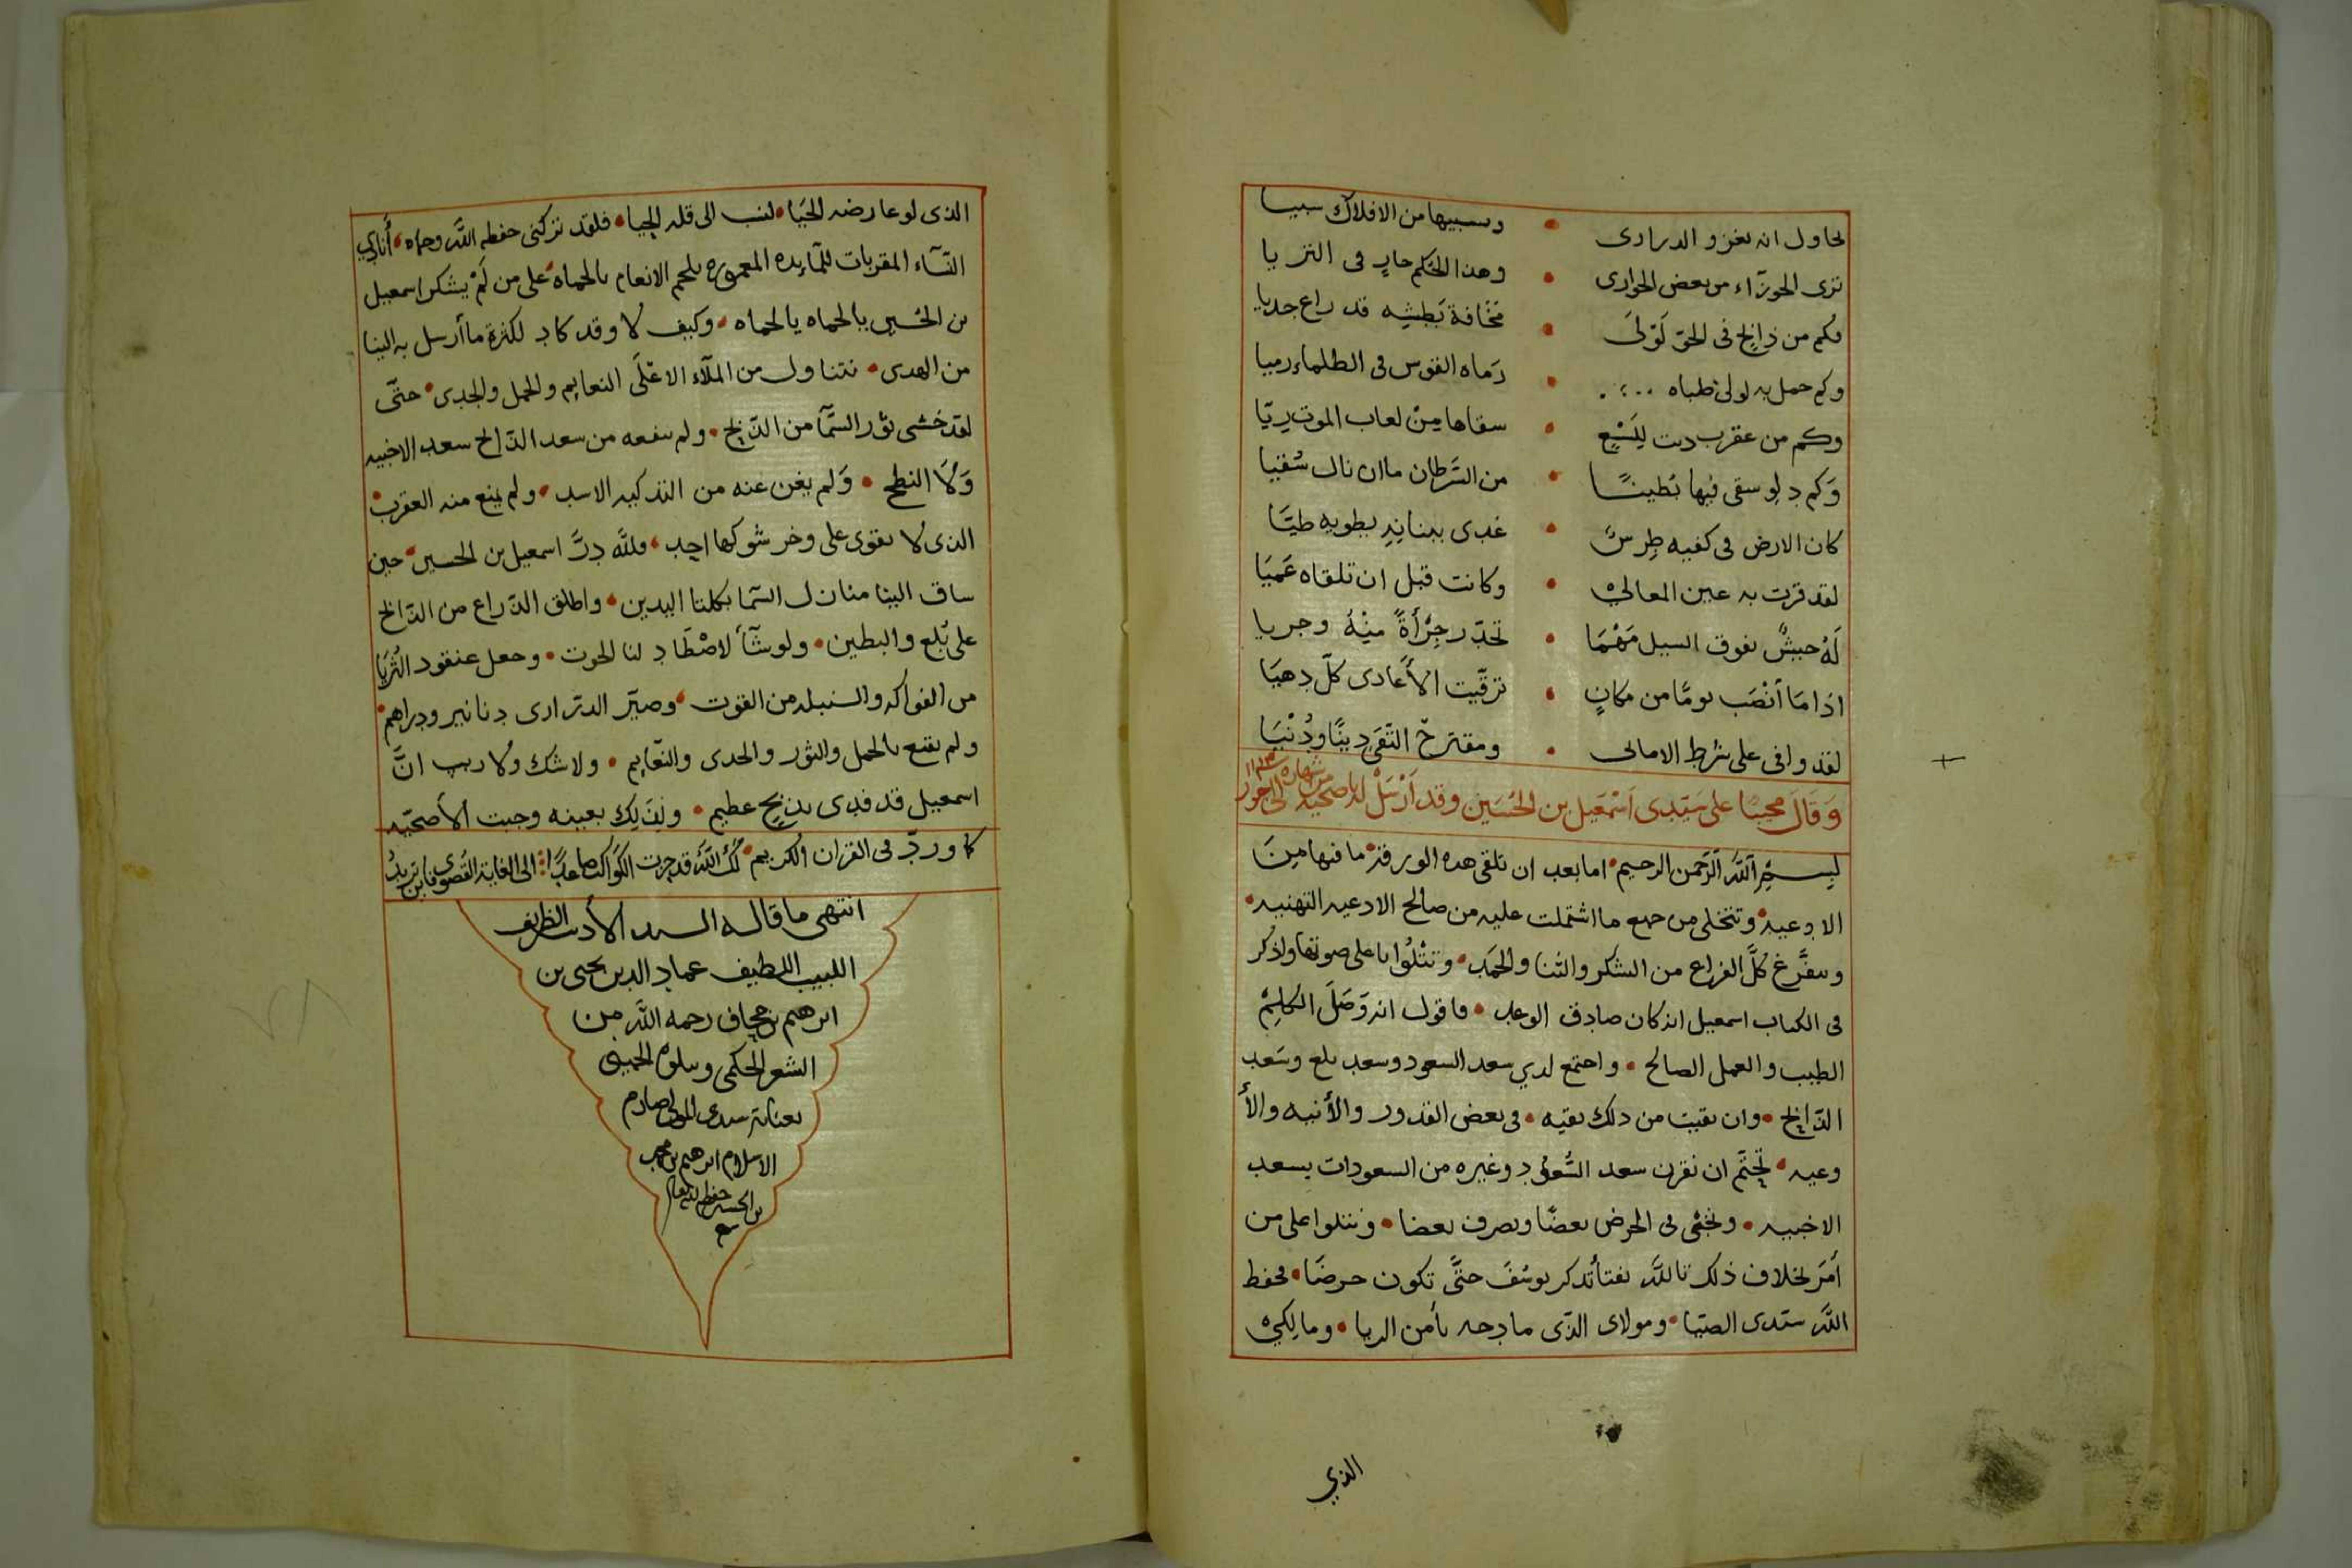 لحاول ان يغزو الدرارى • وسبيها من الافلاك سبيا
ترى الجوزآء من بعض الجوارى • وهذا الحكم جارٍ فى الثريا
فكم من ذابحٍ فى الحق لوّلىَ • مخافة بَطشِه قد راع جديا
وكم حمل به لولى ظباه • رَماه القوس فى الظلماء رميا
وكم من عقرب دبت لِلَسْعٍ • سقاها مِنْ لعاب الموت رِيّا
وَكم دلو سقى فيها بُطينًا • من السَّرطان ما ان نال سُقيا
كان الارض فى كفيه طِرسٌ • غدى ببنانِهِ يطويه طيَّا
لقد قرت به عين المعالىْ • وكانت قبل ان تلقاه عَميَا
لَهُ جيشٌ يفوق السيل مَهْمَا • تحدّر جِرْأةً مِنْهُ وجريا
اذا مَا أنْصَب يومًا من مكانٍ • ترقّبت الأعادى كلّ دهيَا
لقد وافى على شرط الامانى • ومقترح التّقى دِينًا ودُنْيَا
وَقالَ مجيبًا على سَيّدى اَسْمَعيل بن الحُسَين وقد اَرْسَلْ له باضحيه من شهاره الى حور ١١١٣
بِسمِ اللهِ الرَّحمن الرحيم • اما بعد ان تلقى هذه الورقة ما فيها مِنَ
الاوعيه • وتتخلى من جميع ما اشتملت عليه من صالح الادعيه التهنيه •
وتفرَّغ كلَّ الفراغ من الشكر والثنا والحَمد • وتَتْلُوا باعلى صوتها واذكر
فى الكتاب اسمعيل انه كان صادق الوعد • فاقول انه وَصَلَ الكلِمْ
الطيب والعمل الصالح • واجتمع لدي سعد السعود وسعد بلع وسَعد
الذّابح • وان بقيت من ذلك بقيه • فى بعض القدور والأنيه والأ
وعيه • تَحتّم ان نقرن سعد السُّعُود وغيره من السعودات بسعد
الاخبيه • ونخبى فى الحرض بعضًا ونصرف بعضا • ونتلوا على من
أمَرَ بخلاف ذلك تاللَّه تفتأ تذكر يوسُفَ حتَّى تكون حرضَا • فحفظ
اللَّه سيّدى الضيّا • ومولاى الذّى مادحه يأمن الريا • ومالكيْ
الذي
الذى لو عارضه الحَيَا • لنسب الى قله الحيا • فلقد تركنى حفظه اللَّه وحماه • أُنادي
النّسآء المقربات للمآيده المعموره بلحم الانعام يالحماه على من لَمْ يشكر اسمعيل
بن الحُسين يالحماه يالحماه • وكيف لا وقد كاد لكثرة ما أرسل به الينا
من الهدى • نتناول من الملآء الاعلَى النعايم والحمل والجدى • حتّى
لقد خشى ثور السَّمآ من الذّبح • ولم ينفعه من سعد الذّابح سعد الاخبيه
وَلَا النطح • وَلم يغن عنه من التذكيه الاسد • ولم يمنع منه العقرب
الذى لا يقوى على وخز شوكها احد • وللَّه دِرَّ اسمعيل بن الحسين • حين
ساق الينا منازل السّما بكلتا اليدين • واطلق الذّراع من الذّابح
على بُلع والبطين • ولو شآء لاصْطَاد لنا الحوت • وجعل عنقود الثُريَا
من الفواكه والسنبله من القوت • وصيّر الدرارى دنانير ودراهم •
ولم يقنع بالحمل والثور والجدى والنّعايم • ولا شك ولا ريب انَّ
اسمعيل قد فدى بذبحٍ عظيم • ولذلِك بعينه وجبت الأضحيّه
كما وردّ فى القران الكريم • لك اللَّهُ قد جرت الكَواكب صاعدًا ؛ الى الغاية القُصوى فاين تريدُ
انتهى ما قاله السيد الأديب الظريف
اللبيب اللطيف عماد الدين يحيى بن
ابرهيم بن جحاف رحمه اللَّه من
الشعر الحكمى ويتلوه الحمينى
بعناية سيدى المولى صارم
الاسلام ابرهيم بن محمد
بن الحسين حفظه الله تعالى